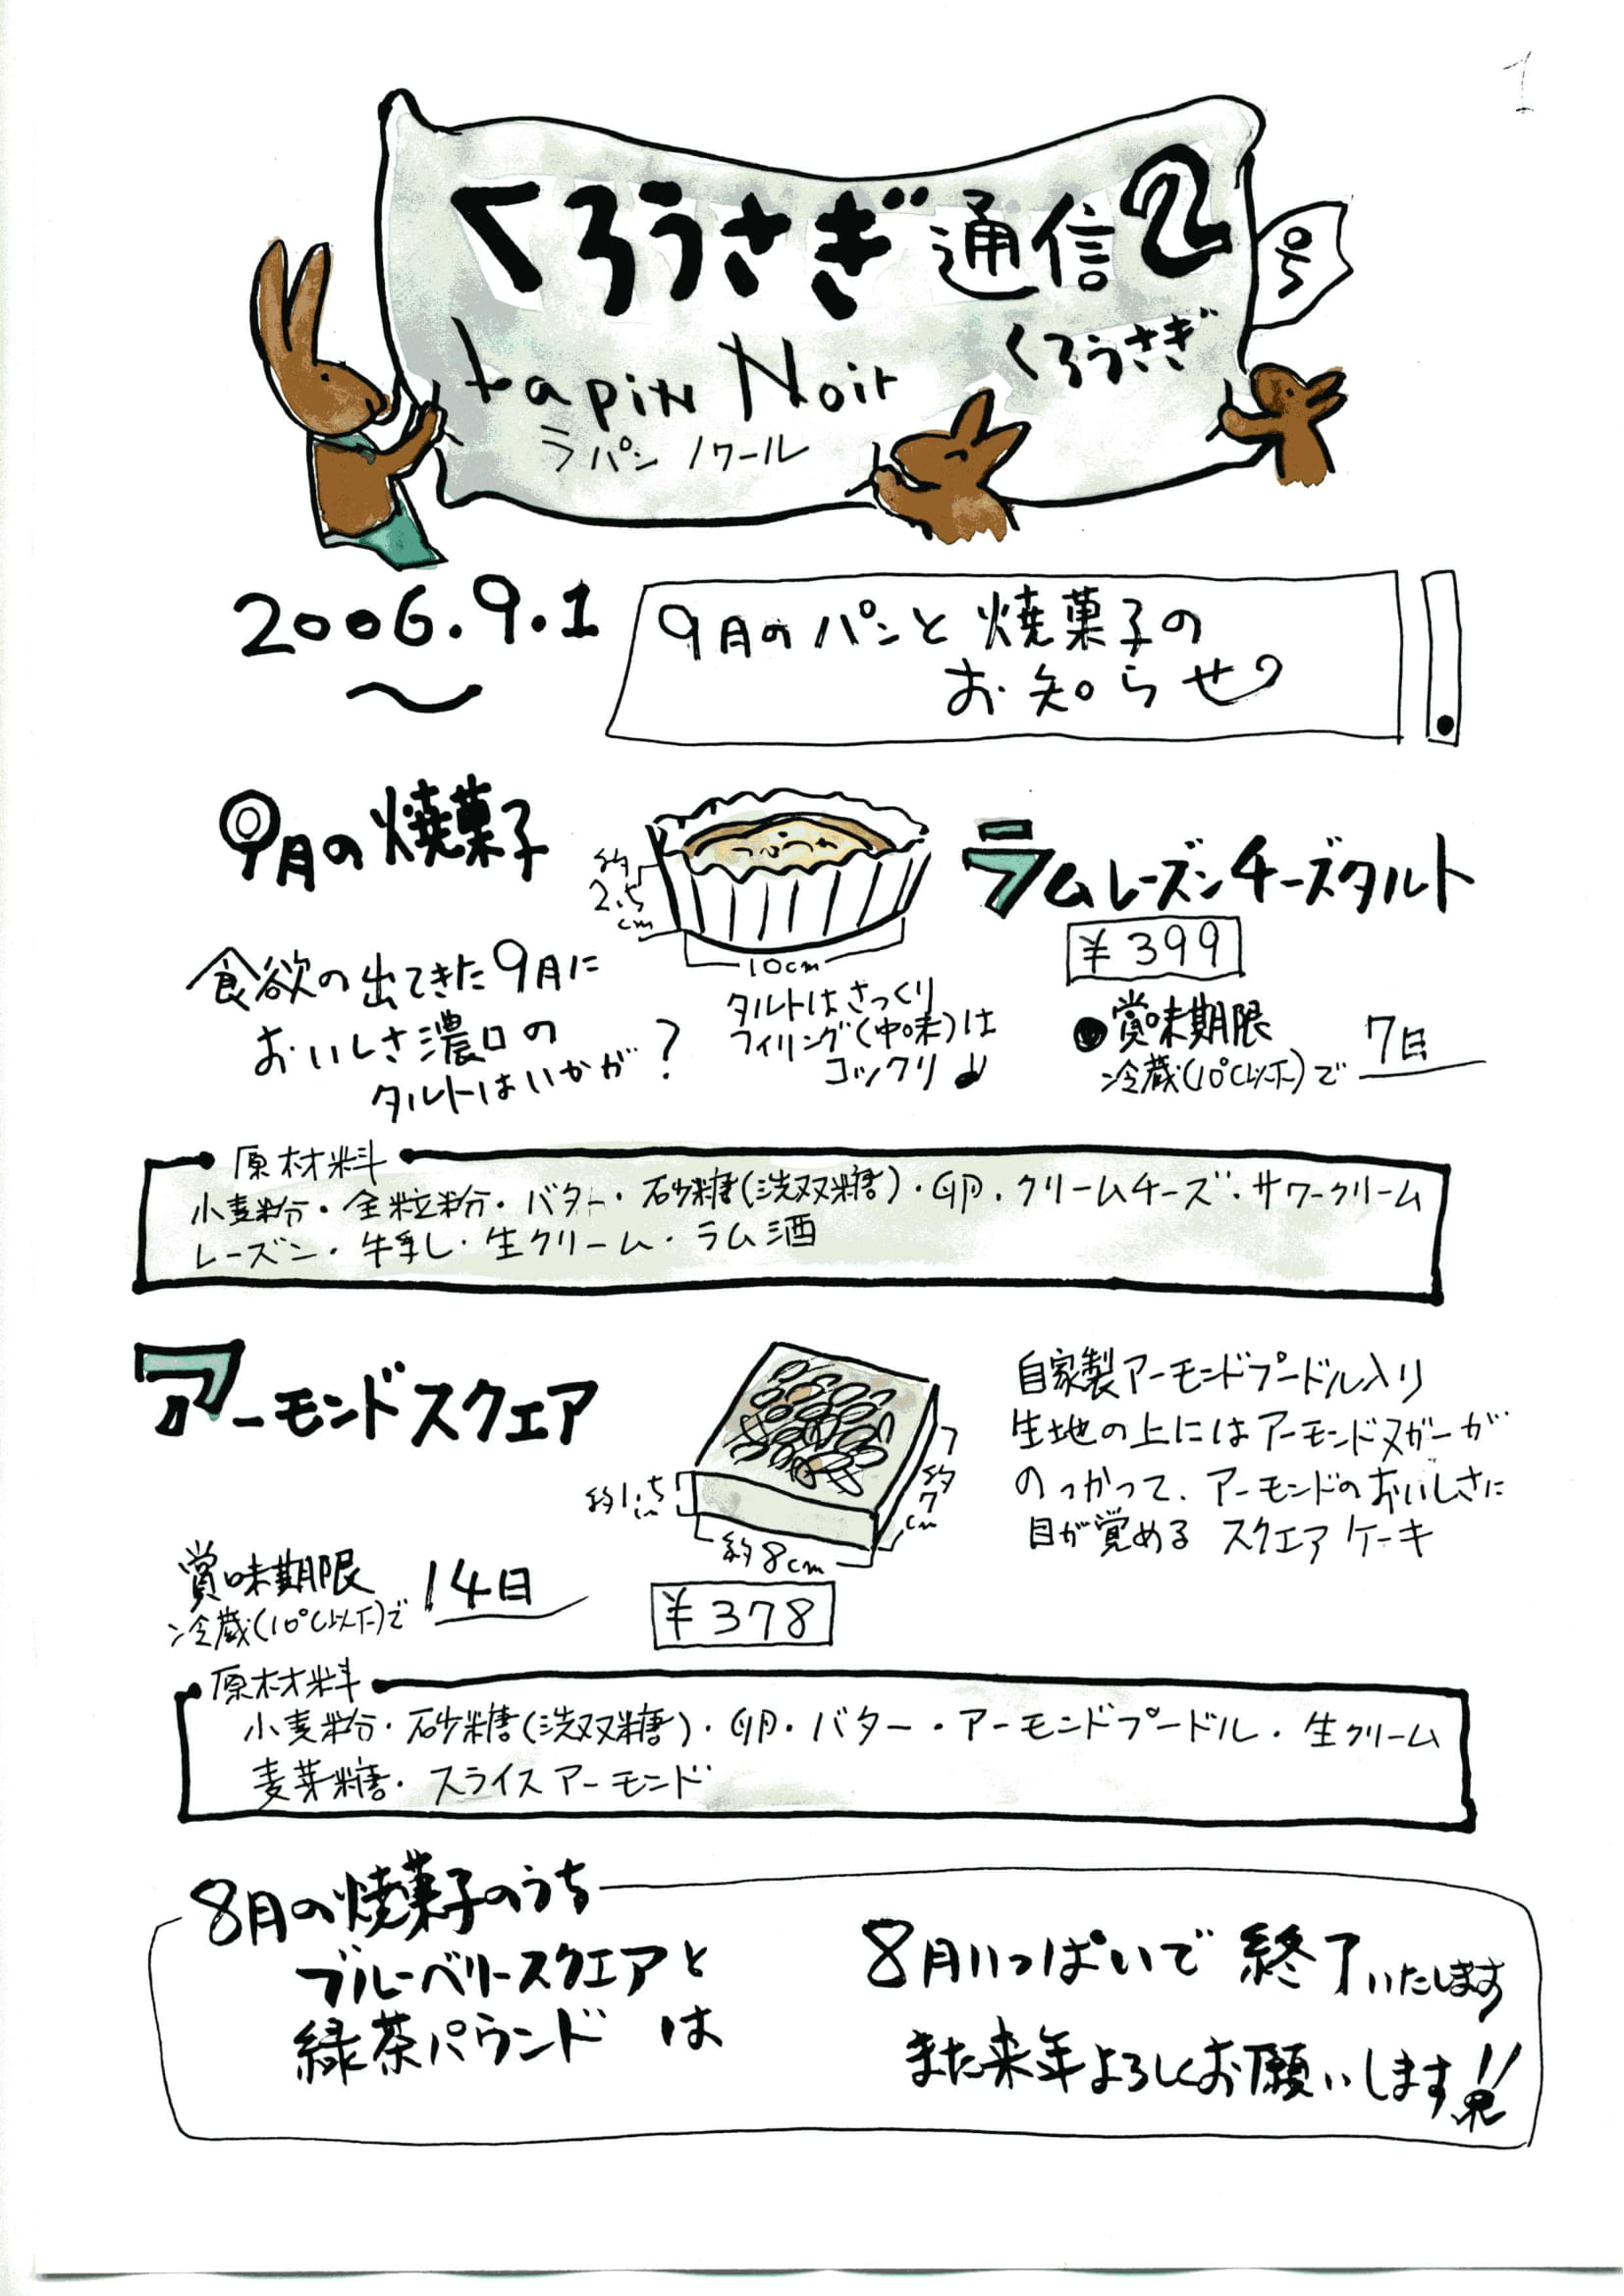 1
くろうさぎ通信2号
Lapin Noir くろうさぎ
ラパン ノワール
2006.9.1
〜
9月のパンと焼菓子の
お知らせ
9月の焼菓子
約
2.5
cm
10cm
ラムレーズンチーズタルト
¥399
食欲の出てきた9月に
おいしさ濃口の
タルトはいかが?
タルトはさっくり
フィリング(中味)は
コックリ♪
●賞味期限
冷蔵(10℃以下)で 7日
原材料
小麦粉・全粒粉・バター・砂糖(洗双糖)・卵・クリームチーズ・サワークリーム
レーズン・牛乳・生クリーム・ラム酒
アーモンドスクエア
約1.5
cm
約8cm
約
7
cm
自家製アーモンドプードル入り
生地の上にはアーモンドヌガーが
のっかって、アーモンドのおいしさに
目が覚める スクエアケーキ
賞味期限
冷蔵(10℃以下)で 14日
¥378
原材料
小麦粉・砂糖(洗双糖)・卵・バター・アーモンドプードル・生クリーム
麦芽糖・スライスアーモンド
8月の焼菓子のうち
ブルーベリースクエアと
緑茶パウンド は
8月いっぱいで 終了いたします
また来年よろしくお願いします!!